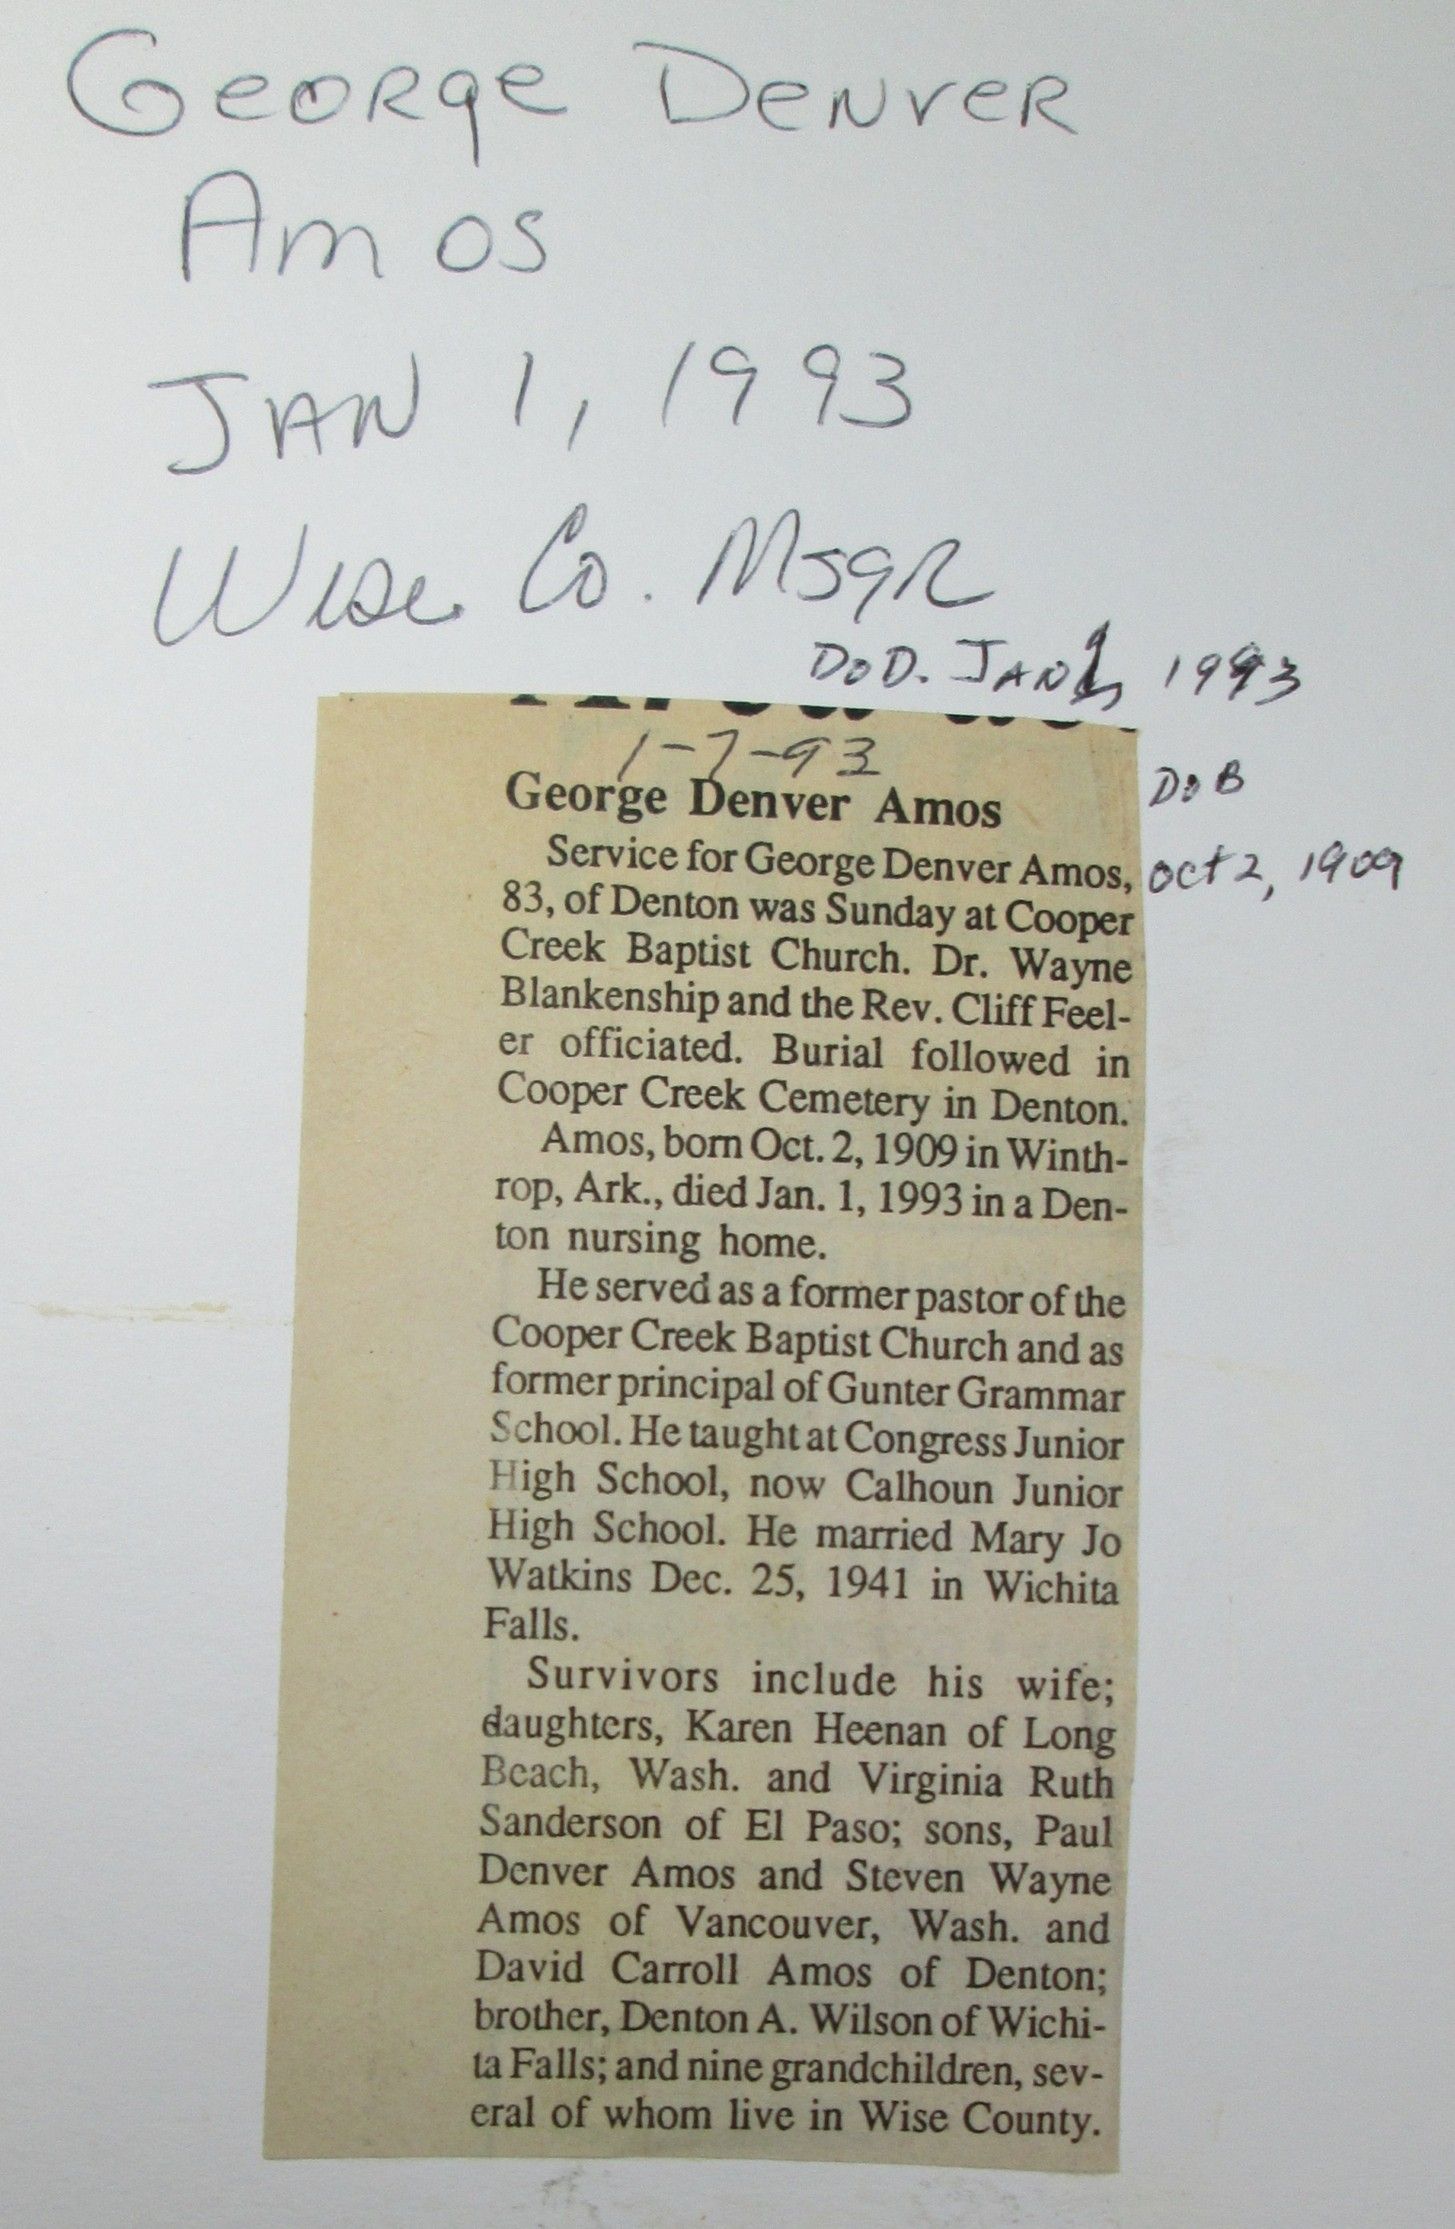 George Denver
Amos
Jan 1, 1993
Wise Co. Msgr
DOD. Jan 1, 1993
1-7-93
George Denver Amos
DOB
Oct 2, 1909
Service for George Denver Amos,
83, of Denton was Sunday at Cooper
Creek Baptist Church. Dr. Wayne
Blankenship and the Rev. Cliff Feel-
er officiated. Burial followed in
Cooper Creek Cemetery in Denton.
Amos, born Oct. 2, 1909 in Winth-
rop, Ark., died Jan. 1, 1993 in a Den-
ton nursing home.
He served as a former pastor of the
Cooper Creek Baptist Church and as
former principal of Gunter Grammar
School. He taught at Congress Junior
High School, now Calhoun Junior
High School. He married Mary Jo
Watkins Dec. 25, 1941 in Wichita
Falls.
Survivors include his wife;
daughters, Karen Heenan of Long
Beach, Wash. and Virginia Ruth
Sanderson of El Paso; sons, Paul
Denver Amos and Steven Wayne
Amos of Vancouver, Wash. and
David Carroll Amos of Denton;
brother, Denton A. Wilson of Wichi-
ta Falls; and nine grandchildren, sev-
eral of whom live in Wise County.